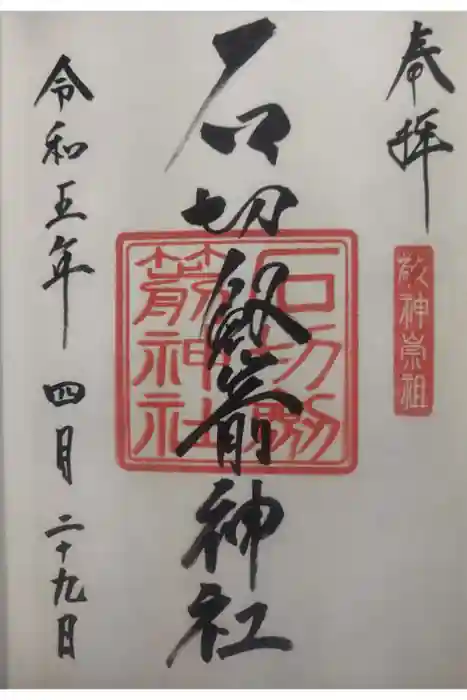 奉拝
敬神崇祖
石切劔箭神社
石切劔箭神社
令和五年 四月 二十九日